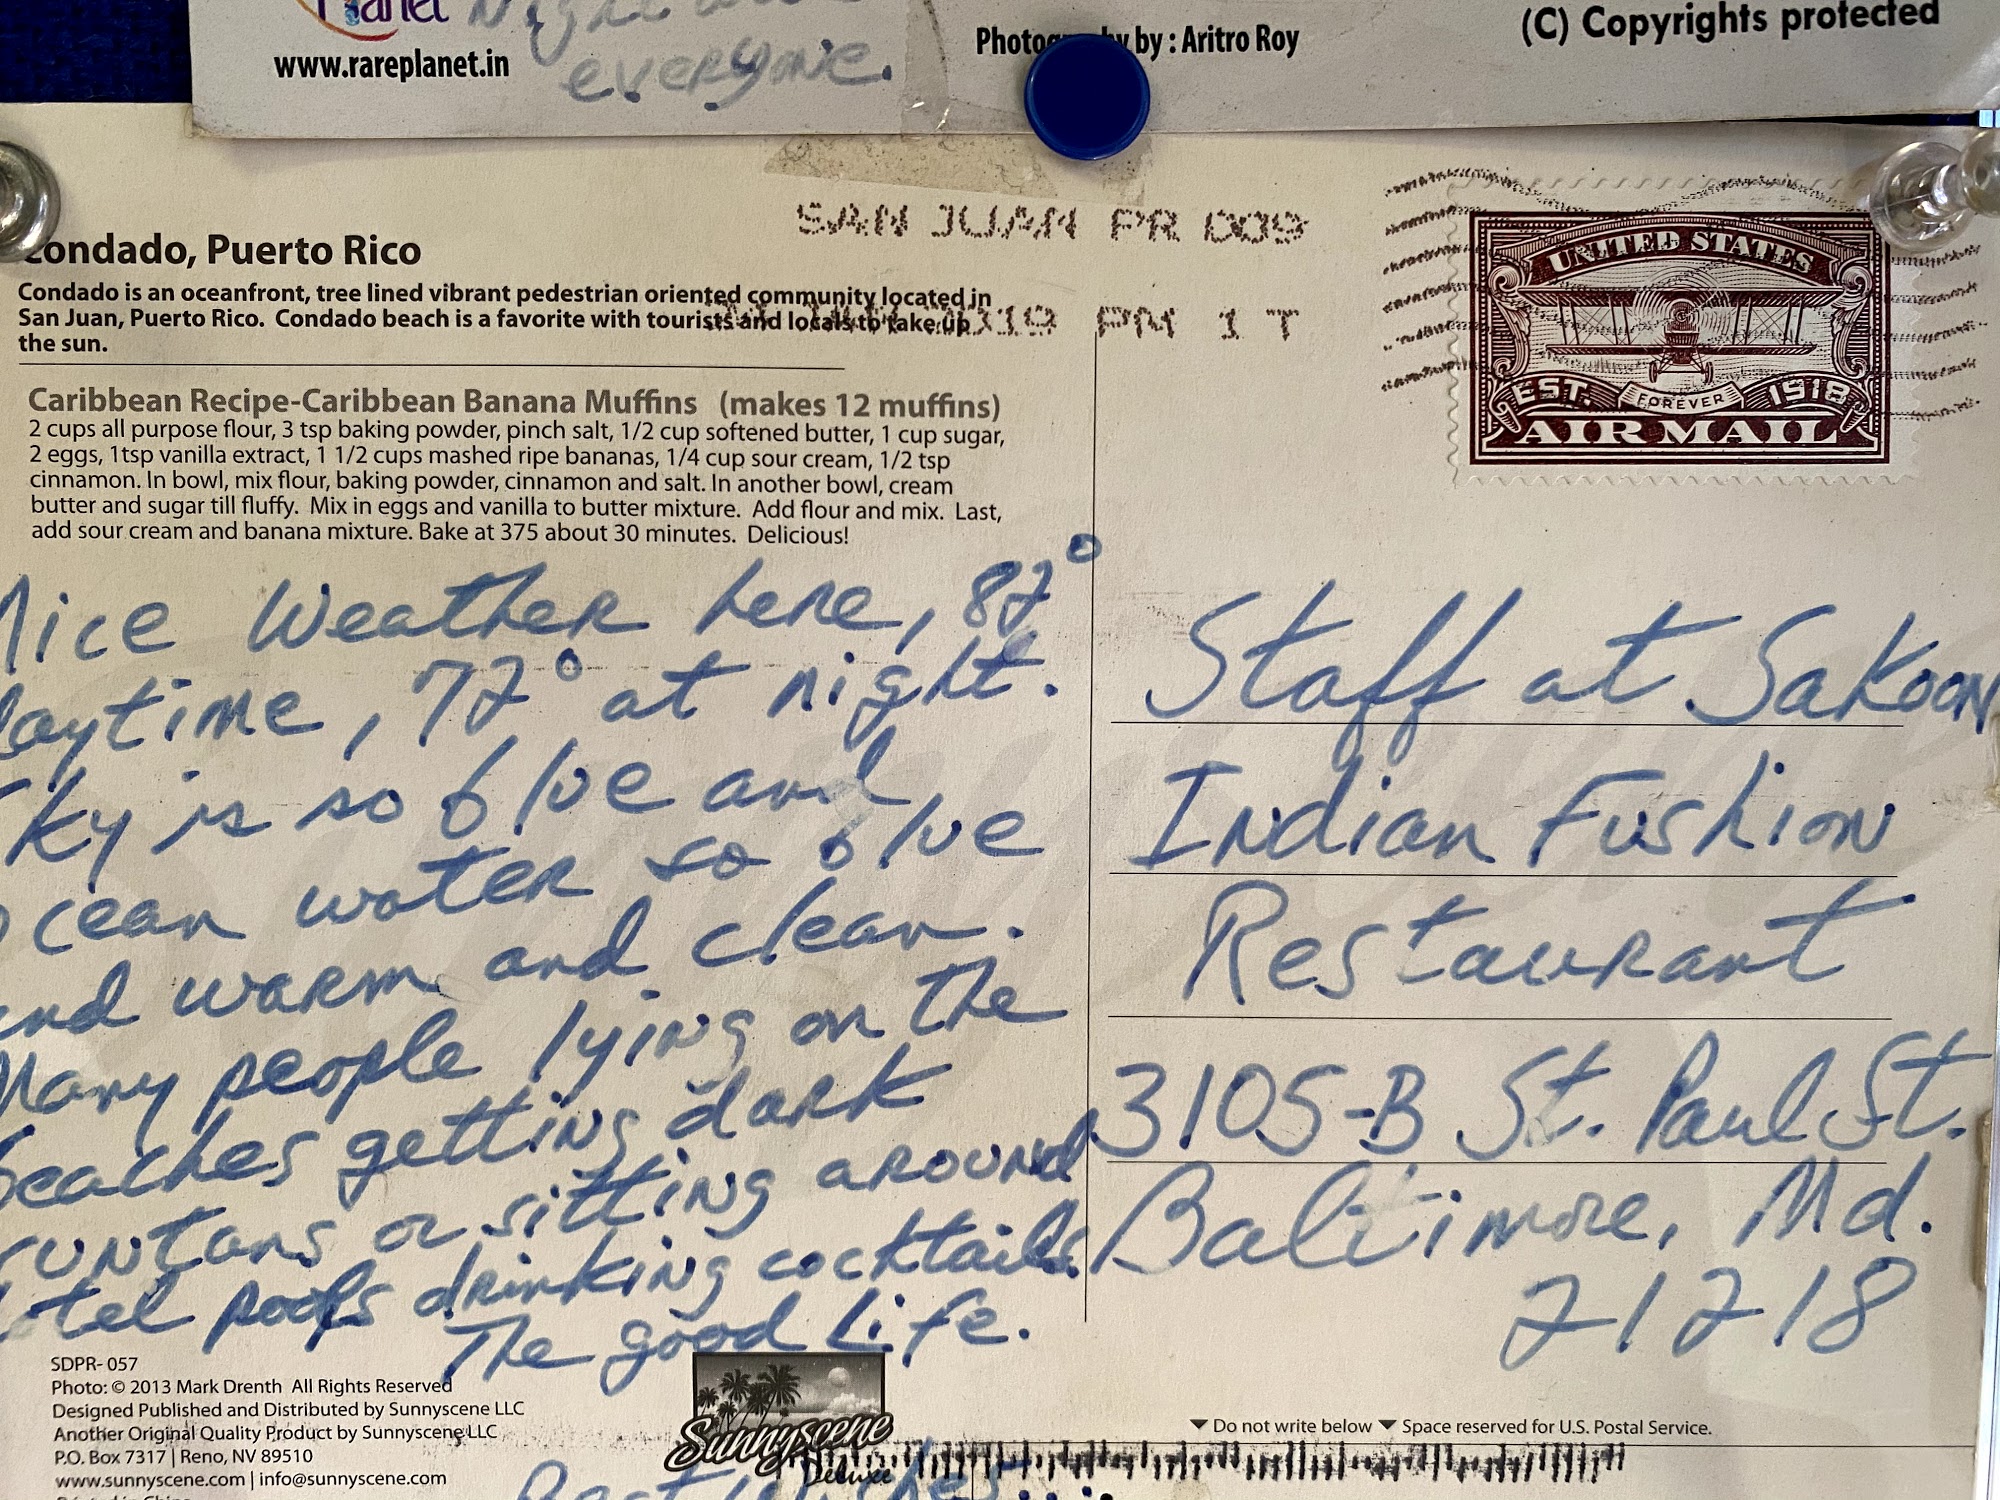 Planet
Night
everyone.
www.rareplanet.in
Photography by : Aritro Roy
(C) Copyrights protected
SAN JUAN PR 009
2019 PM 1 T
UNITED STATES
EST. FOREVER 1918
AIR MAIL
Condado, Puerto Rico
Condado is an oceanfront, tree lined vibrant pedestrian oriented community located in
San Juan, Puerto Rico. Condado beach is a favorite with tourists and locals to take up
the sun.
Caribbean Recipe-Caribbean Banana Muffins (makes 12 muffins)
2 cups all purpose flour, 3 tsp baking powder, pinch salt, 1/2 cup softened butter, 1 cup sugar,
2 eggs, 1tsp vanilla extract, 1 1/2 cups mashed ripe bananas, 1/4 cup sour cream, 1/2 tsp
cinnamon. In bowl, mix flour, baking powder, cinnamon and salt. In another bowl, cream
butter and sugar till fluffy. Mix in eggs and vanilla to butter mixture. Add flour and mix. Last,
add sour cream and banana mixture. Bake at 375 about 30 minutes. Delicious!
Nice Weather here, 82°
daytime, 72° at night.
Sky is so blue and
Ocean water so blue
and warm and clean.
Many people lying on the
beaches getting dark
suntans or sitting around
hotel pools drinking cocktails.
The good Life.
Staff at Sakoon
Indian Fushion
Restaurant
3105-B St. Paul St.
Baltimore, Md.
21218
SDPR- 057
Photo: © 2013 Mark Drenth All Rights Reserved
Designed Published and Distributed by Sunnyscene LLC
Another Original Quality Product by Sunnyscene LLC
P.O. Box 7317 | Reno, NV 89510
www.sunnyscene.com | info@sunnyscene.com
Printed in China
Sunnyscene
Deluxe
Do not write below Space reserved for U.S. Postal Service.
Best Wishes